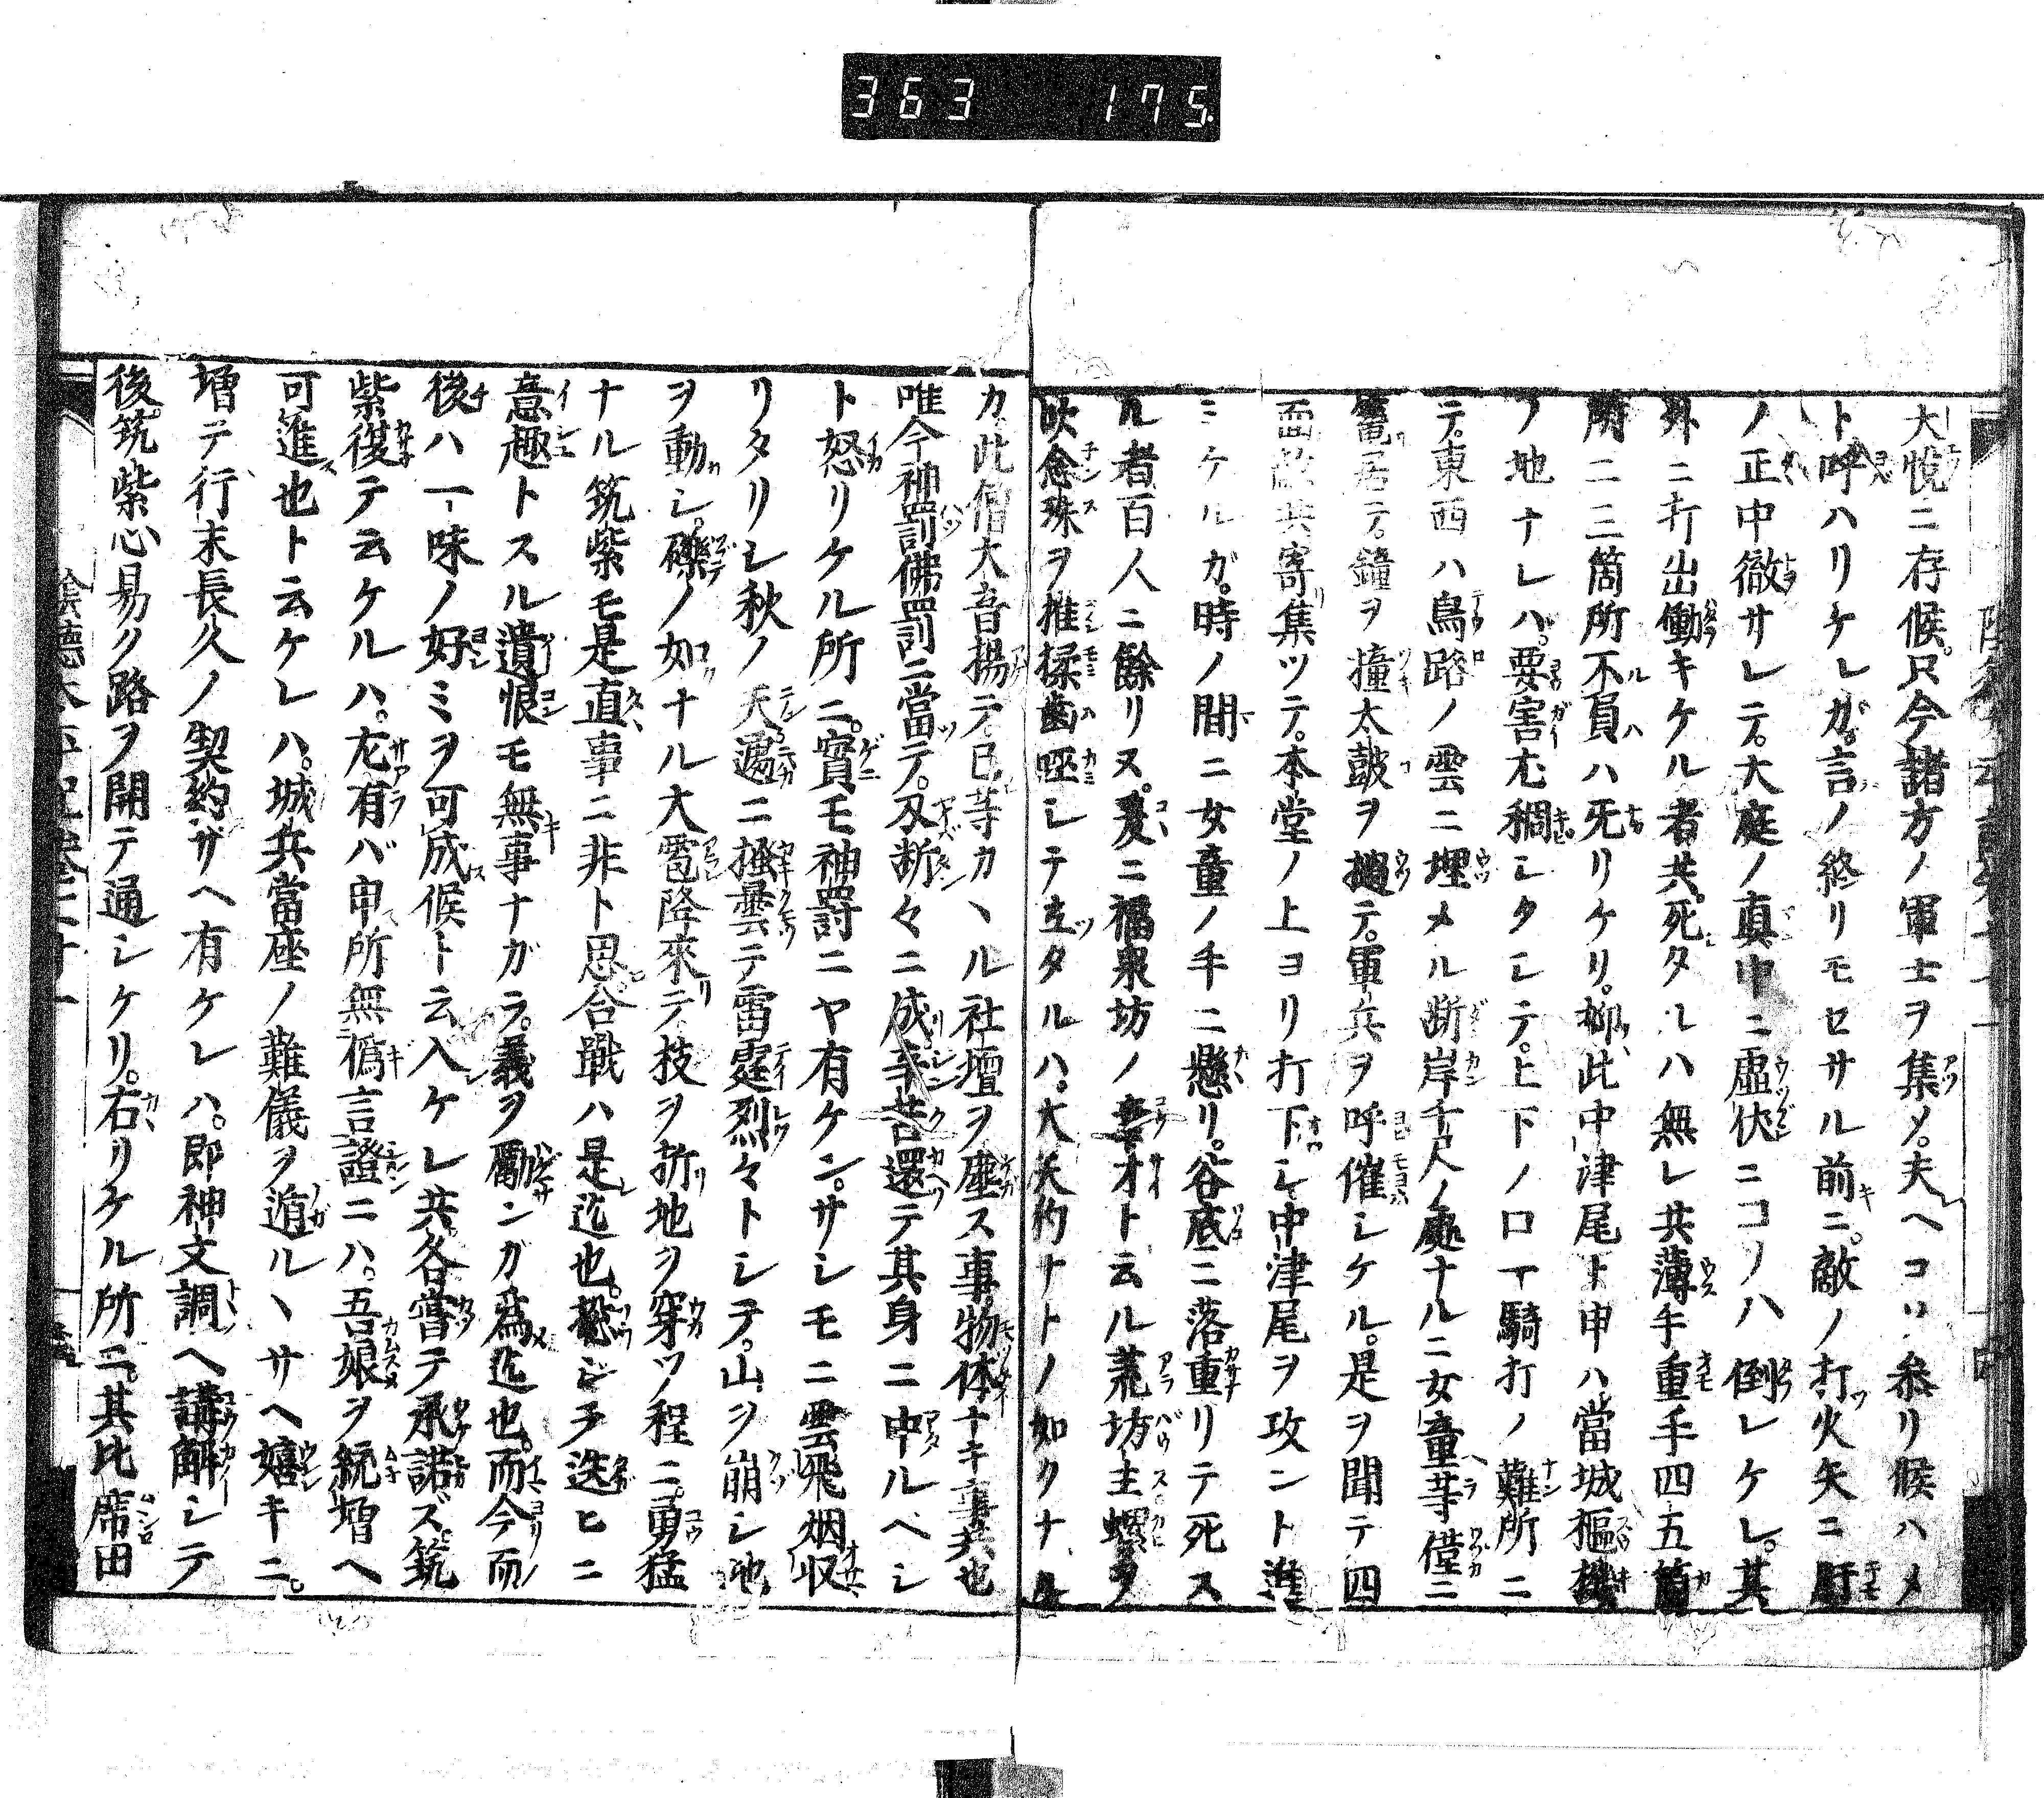 363 175
大悦ニ存候。只今諸方ノ軍士ヲ集メ。夫ヘコソ参リ候ハメ
ト呼ハリケレガ。言ノ終リモセサル前ニ。敵ノ打火矢ニ肝
ノ正中徹サレテ。大庭ノ真中ニ虚伏ニコソハ倒レケレ。其
外ニ打出働キケル者共。死タルハ無レ共薄手重手四五箇
所二三箇所不負ハ死リケリ。抑此中津尾ト申ハ當城樞機
ノ地ナレハ。要害尤稠シタシテ。上下ノ口一騎打ノ難所ニ
テ。東西ハ鳥路ノ雲ニ埋メル断岸千尺ノ處ナルニ女童等僅ニ
篭居テ。鐘ヲ撞太鼓ヲ撾テ。軍兵ヲ呼催シケル。是ヲ聞テ四
面敵共寄集ツテ。本堂ノ上ヨリ打下シ中津尾ヲ攻ント進
ミケルガ。時ノ間ニ女童ノ手ニ懸リ。谷底ニ落重リテ死ス
ル者百人ニ餘リヌ。爰ニ福泉坊ノ幸オト云ル荒坊主螺ヲ
吹念珠ヲ推揉歯咥シテ立タルハ。大天狗ナトノ如クナル
カ。此僧大音揚テ。已等カヽル社壇ヲ塵ス事。物体ナキ事共也
唯今神罰佛罰ニ當テ。刄断々ニ成辛苦還テ其身ニ中ルヘシ
ト怒リケル所ニ。實モ神罸ニヤ有ケン。サシモニ雲飛烟収
リタリシ秋ノ天。遽ニ掻曇テ雷霆烈々トシテ。山ヲ崩シ地
ヲ動シ。礫ノ如ナル大雹降來テ枝ヲ折地ヲ穿ツノ程ニ。勇猛
ナル筑紫モ是直事ニ非ト思。合戰ハ是迄也。揔シテ迭ヒニ
意趣トスル遺恨モ無事ナガラ。義ヲ勵ンガ為迄也。而今而
後ハ一味ノ好ミヲ可成候ト云入ケレ共。各嘗テ承諾ズ筑
紫復テ云ケルハ。尤有バ申所無偽言證ニハ。吾娘ヲ統増ヘ
可進也ト云ケレハ。城兵當座ノ難儀ヲ逭ルヽサヘ嬉キニ。
増テ行末長久ノ契約サヘ有ケレハ。即神文調ヘ講解シテ
後。筑紫心易ク路ヲ開テ通シケリ。右リケル所ニ。其比席田
陰德太平記卷